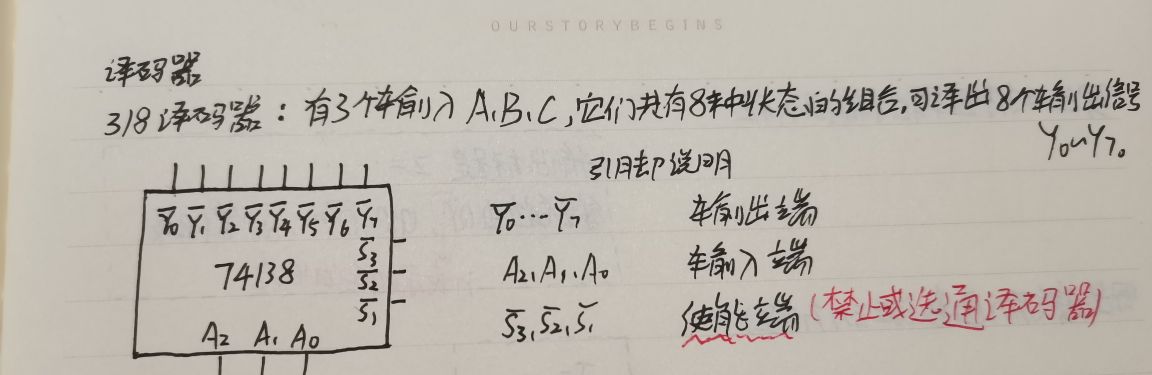 OURSTORYBEGINS
译码器
3/8译码器：有3个输入A、B、C,它们共有8种状态的组合,可译出8个输出信号
Y₀~Y₇。
引脚说明
Y̅₀ Y̅₁ Y̅₂ Y̅₃ Y̅₄ Y̅₅ Y̅₆ Y̅₇
S̅₃
74138 S̅₂
S̅₁
A₂ A₁ A₀
Y̅₀…Y̅₇ 输出端
A₂、A₁、A₀ 输入端
S̅₃、S̅₂、S̅₁ 使能端(禁止或选通译码器)